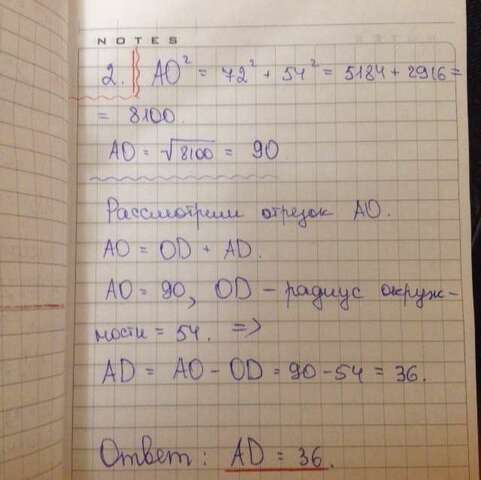 NOTES
2. AO² = 72² + 54² = 5184 + 2916 =
= 8100.
AO = √8100 = 90
Рассмотрим отрезок AO.
AO = OD + AD.
AO = 90, OD – радиус окруж-
ности = 54. =>
AD = AO – OD = 90 – 54 = 36.
Ответ: AD = 36.